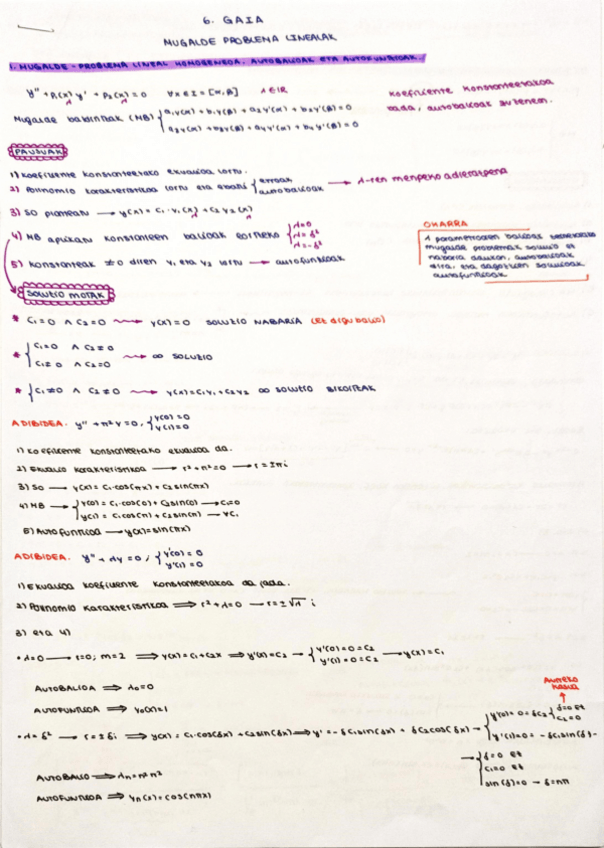 6. GAIA
MUGALDE PROBLEMA LINEALAK
1. MUGALDE-PROBLEMA LINEAL HOMOGENEOA. AUTOBALIOAK ETA AUTOFUNTZIOAK.
y'' + P₁(x) y' + P₂(x) = 0 ∀x ∈ I = [α, β] λ ∈ ℝ
koefiziente konstanteetakoa
bada, autobalioak zuzenean.
Mugalde baldintzak (MB) { a₁y(α) + b₁y(β) + a₂y'(α) + b₂y'(β) = 0
a₃y(α) + b₃y(β) + a₄y'(α) + b₄y'(β) = 0
PAUSUAK
1) Koefiziente konstanteetako ekuazioa lortu.
2) Polinomio karakteristikoa lortu eta aztertu { erroak
autobalioak → λ-ren menpeko adierazpena
3) SO planteatu → y(x) = C₁·y₁(x) + C₂y₂(x)
4) MB aplikatu konstanteen balioak lortzeko { λ=0
λ=δ²
λ=-δ²
5) Konstanteak ≠0 diren y₁ eta y₂ lortu → autofuntzioak
OHARRA
λ parametroaren balioak
mugalde problemak soluzio ez
nabaria daukan, autobalioak
dira, eta dagozkien soluzioak
autofuntzioak
SOLUZIO MOTAK
* C₁=0 ∧ C₂=0 → y(x)=0 SOLUZIO NABARIA (Ez digu balio)
* { C₁=0 ∧ C₂≠0
C₁≠0 ∧ C₂=0 → ∞ SOLUZIO
* { C₁≠0 ∧ C₂≠0 → y(x)=C₁y₁+C₂y₂ ∞ SOLUZIO BIKOITZAK
ADIBIDEA. y''+π²y=0, { y(0)=0
y(1)=0
1) Koefiziente konstanteetako ekuazioa da.
2) Ekuazio karakteristikoa → r²+π²=0 → r=±πi
3) SO → y(x)=C₁·cos(πx)+C₂sin(πx)
4) MB → { y(0)=C₁·cos(0)+C₂sin(0) → C₁=0
y(1)=C₁cos(π)+C₂sin(π) → ∀C₁
5) AUTOFUNTZIOA → y(x)=sin(πx)
ADIBIDEA. y''+λy=0; { y'(0)=0
y'(1)=0
1) Ekuazioa koefiziente konstanteetakoa da jada.
2) Polinomio karakteristikoa ⟹ r²+λ=0 → r=±√λ i
3) eta 4)
• λ=0 → r=0; m=2 ⟹ y(x)=C₁+C₂x ⟹ y'(x)=C₂ → { y'(0)=0=C₂
y'(1)=0=C₂ → y(x)=C₁
AUTOBALIOA ⟹ λ₀=0
AUTOFUNTZIOA ⟹ y₀(x)=1
AURREKO
KASUA
• λ=δ² → r=±δi ⟹ y(x)=C₁·cos(δx)+C₂sin(δx) ⟹ y'=-δC₁sin(δx)+δC₂cos(δx) → { y'(0)=0=δC₂ { δ=0 ez
C₂=0
y'(1)=0=-δC₁sin(δ)-
→ { δ=0 ez
C₁=0 ez
sin(δ)=0 → δ=nπ
AUTOBALIO ⟹ λₙ=n²π²
AUTOFUNTZIOA ⟹ yₙ(x)=cos(nπx)